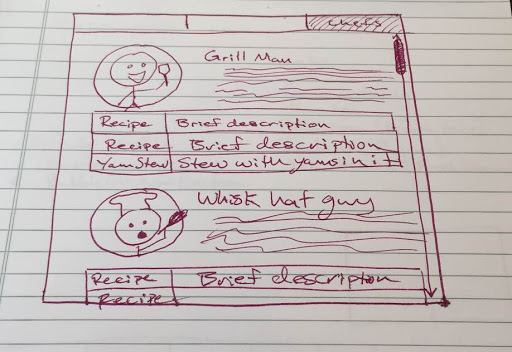 Chefs
Grill Man
Recipe Brief description
Recipe Brief description
Yam Stew Stew with yams in it
Whisk hat guy
Recipe Brief description
Recipe